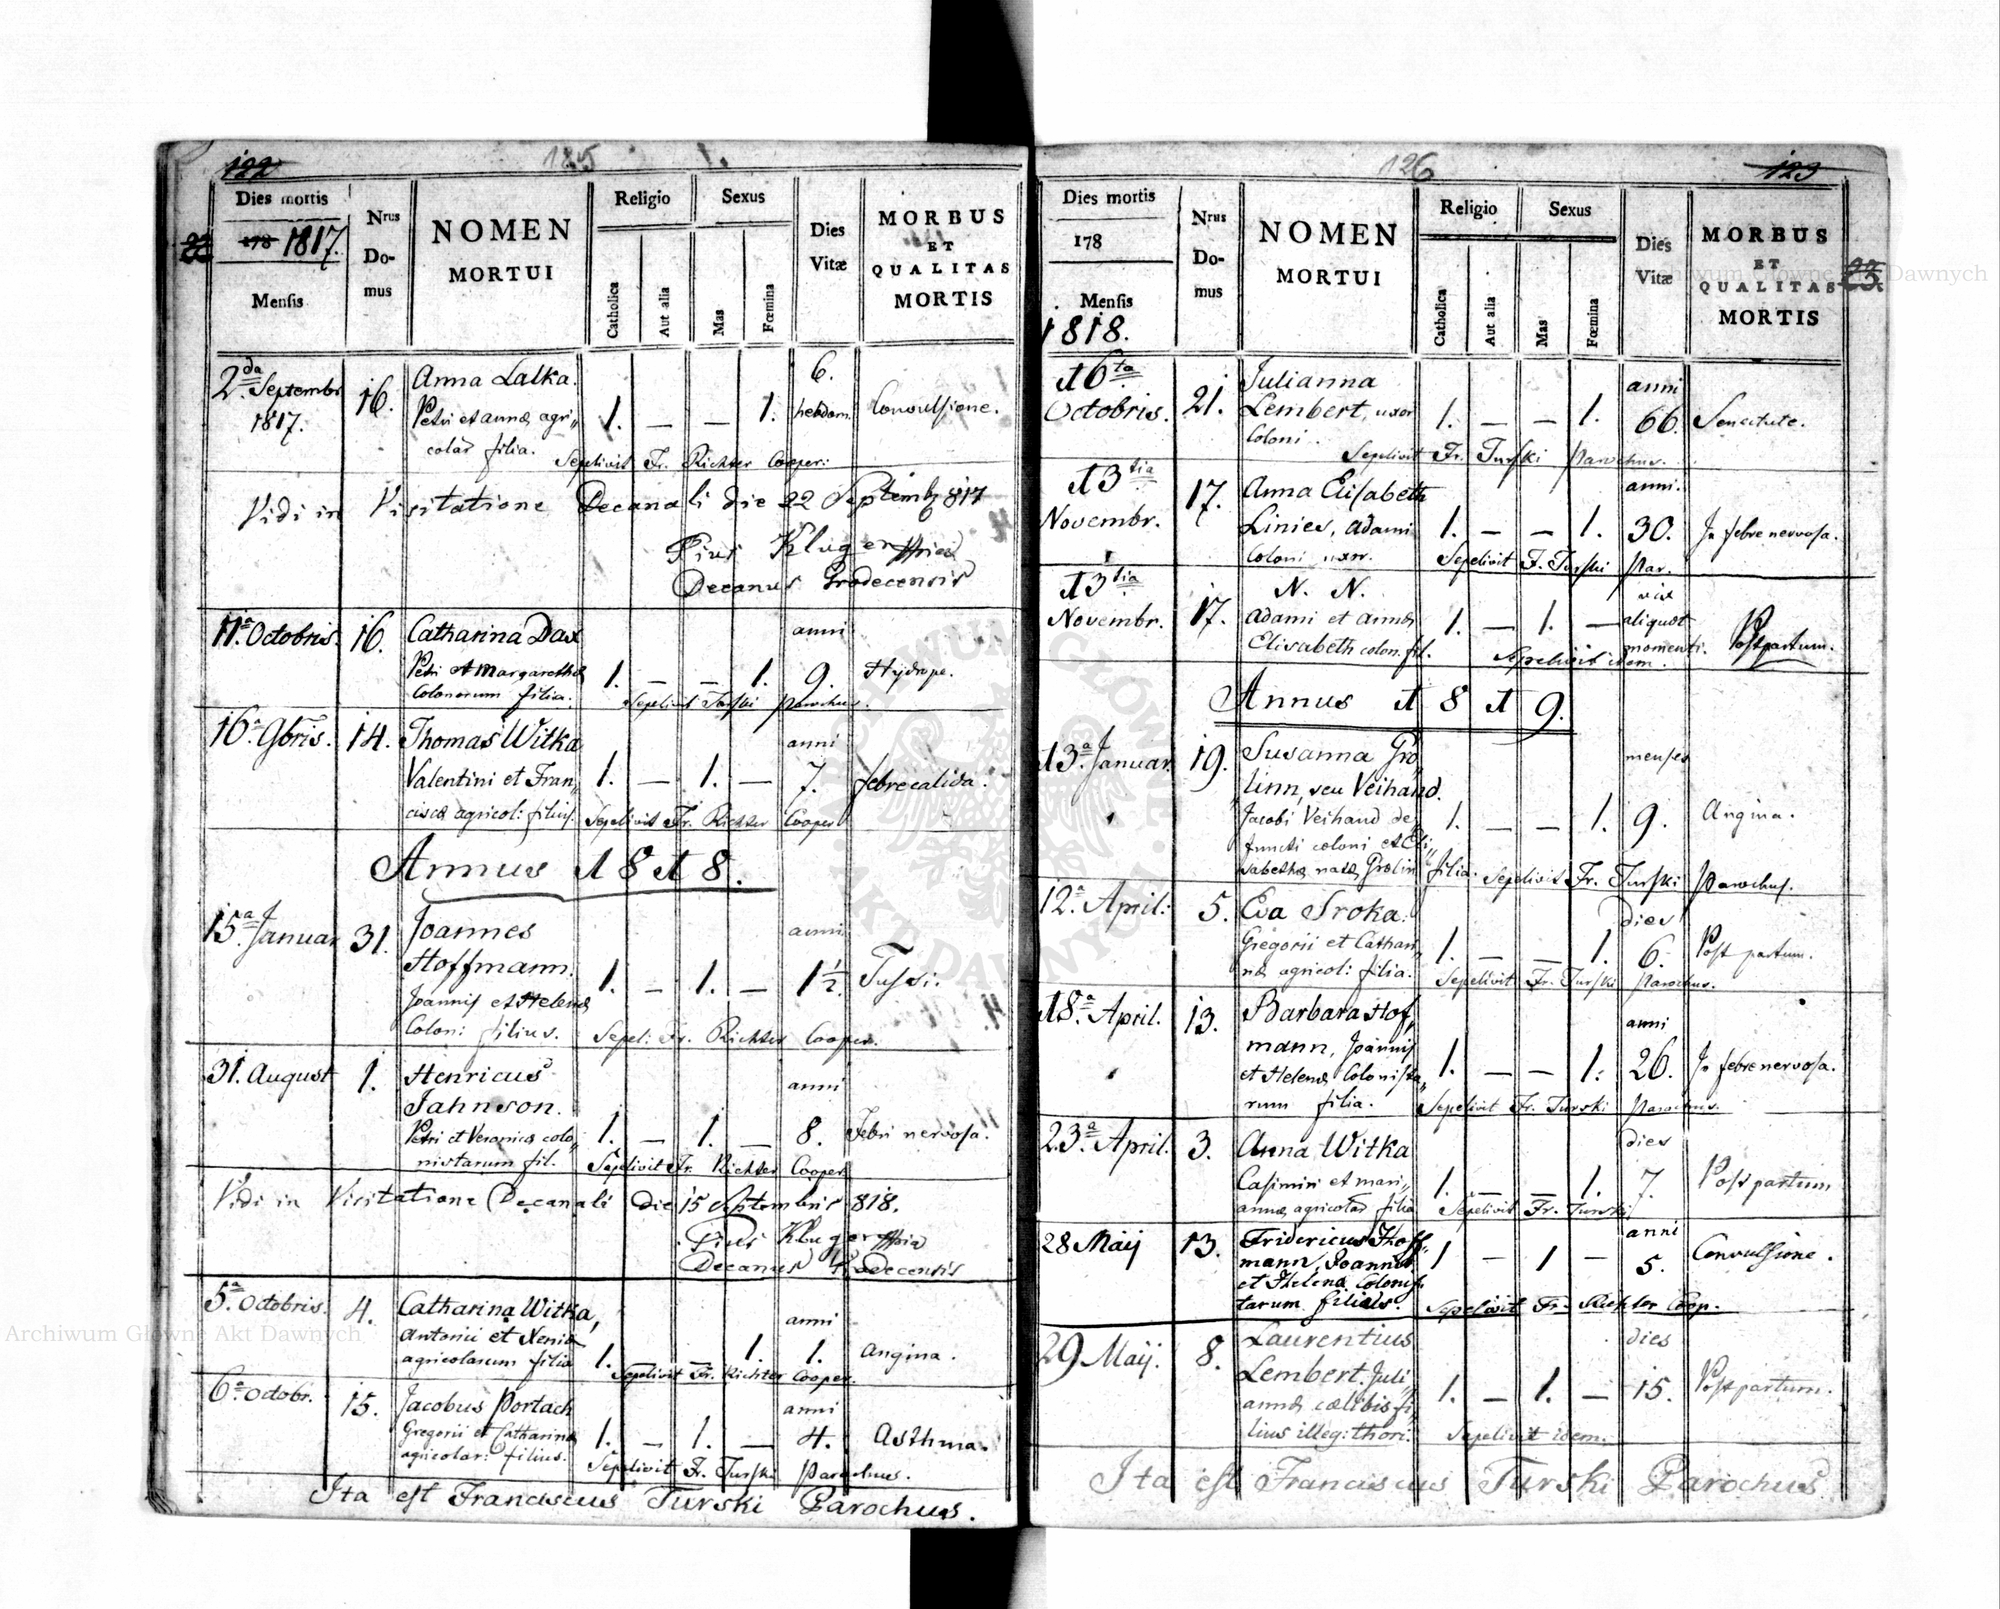 122
185
Dies mortis
178 1817.
Mensis
Nrus
Do-
mus
NOMEN
MORTUI
Religio
Catholica
Aut alia
Sexus
Mas
Fœmina
Dies
Vitæ
MORBUS
ET
QUALITAS
MORTIS
22
2da Septembr
1817.
16.
Anna Lalka.
Petri et annæ agri„
colar filia.
1. — — 1.
6.
hebdom.
Convulsione.
Sepelivit Fr. Richter Cooper:
Vidi in Visitatione Decanali die 22 Septemb 817
Pius Kluger
Decanus Grodecensis
11.a Octobris.
16.
Catharina Dax
Petri et Margarethæ
Colonorum filia.
1. — — 1.
anni
9.
Hydrope.
Sepelivit Turski Parochus.
16.a 9bris.
14.
Thomas Witka
Valentini et Fran„
ciscæ agricol: filius.
1. — 1. —
anni
7.
febre calida.
Sepelivit Fr. Richter Cooper
Annus 1818.
15.a Januar
31.
Joannes
Hoffmann.
Joannis et Helenæ
Coloni filius.
1. — 1. —
anni
1½.
Tussi.
Sepel: Fr. Richter Cooper.
31. August
1.
Henricus
Jahnson.
Petri et Veronicæ colo„
nistarum fil.
1. — 1. —
anni
8.
Febri nervosa.
Sepelivit Fr. Richter Cooper
Vidi in Visitatione Decanali die 15 Septembris 818.
Pius Kluger
Decanus
5.a Octobris.
4.
Catharina Witka,
Antonii et Xeniæ
agricolarum filia
1. — 1.
anni
1.
Angina.
Sepelivit Fr. Richter Cooper.
6.a Octobr.
15.
Jacobus Portach
Gregorii et Catharinæ
agricolar: filius.
1. — 1. —
anni
4.
Asthma.
Sepelivit Fr. Turski Parochus.
Ita est Franciscus Turski Parochus.
126
123
Dies mortis
178
Mensis
1818.
Nrus
Do-
mus
NOMEN
MORTUI
Religio
Catholica
Aut alia
Sexus
Mas
Fœmina
Dies
Vitæ
MORBUS
ET
QUALITAS
MORTIS
23.
16ta
Octobris.
21.
Julianna
Lembert, uxor
Coloni.
1. — — 1.
anni
66.
Senectute.
Sepelivit Fr. Turski Parochus.
13tia
Novembr.
17.
Anna Elisabeth
Linies, Adami
Coloni uxor.
1. — — 1.
anni.
30.
In febre nervosa.
Sepelivit F. Turski Par.
13tia
Novembr.
17.
N. N.
Adami et Annæ
Elisabeth colon. fil.
1. — 1. —
vix
aliquot
momenti.
Post partum.
Sepelivit idem.
Annus 1819.
13.a Januar.
19.
Susanna Grö„
linn, seu Veihand.
Jacobi Veihand de„
functi coloni et Eli„
sabethæ natæ Grölin filia.
1. — — 1.
menses
9.
Angina.
Sepelivit Fr. Turski Parochus.
12.a April:
5.
Eva Sroka.
Gregorii et Cathari„
næ agricol: filia.
1. — — 1.
dies
6.
Post partum.
Sepelivit Fr. Turski Parochus.
18.a April.
13.
Barbara Hof„
mann, Joannis
et Helenæ Colonista„
rum filia.
1. — — 1.
anni
26.
In febre nervosa.
Sepelivit Fr. Turski Parochus.
23.a April.
3.
Anna Witka
Casimiri et Mari„
annæ agricolar filia
1. — — 1.
dies
7.
Post partum
Sepelivit Fr. Turski
28 Maij
13.
Fridericus Hoff„
mann, Joannis
et Helenæ Colonis„
tarum filius.
1 — 1 —
anni
5.
Convulsione.
Sepelivit Fr. Richter Coop.
29 Maij.
8.
Laurentius
Lembert. Juli„
annæ cælibis fi„
lius illeg: thori.
1. — 1. —
dies
15.
Post partum.
Sepelivit idem.
Ita est Franciscus Turski Parochus
Archiwum Główne Akt Dawnych
Archiwum Główne Akt Dawnych
ARCHIWUM GŁÓWNE · AKT DAWNYCH ·